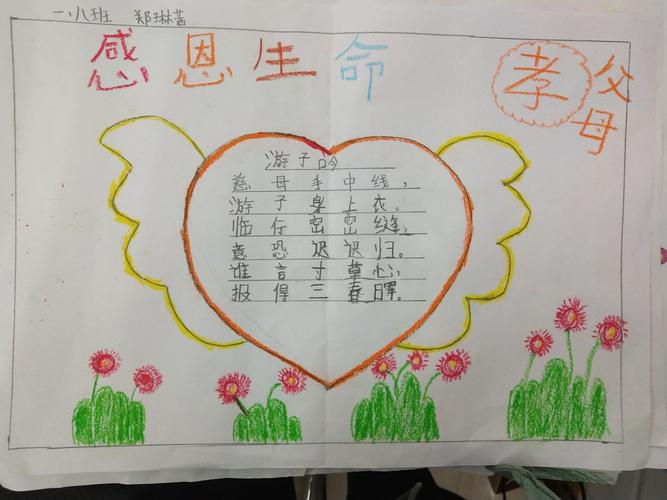 一.八班 郑琳茜
感恩生命
孝父母
游子吟
慈母手中线，
游子身上衣。
临行密密缝，
意恐迟迟归。
谁言寸草心，
报得三春晖。